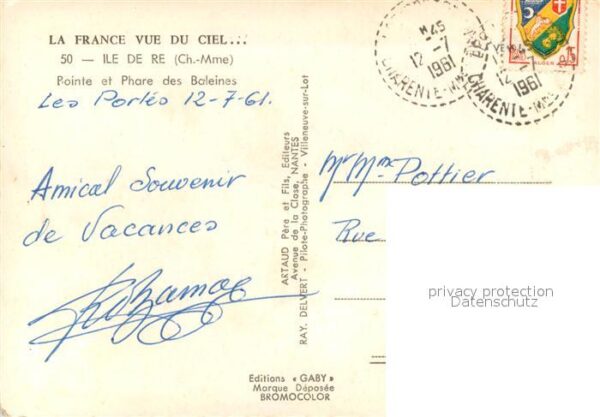 LA FRANCE VUE DU CIEL...
50 — ILE DE RE (Ch.-Mme)
Pointe et Phare des Baleines
Les Portes 12-7-61.
Amical Souvenir
de Vacances
Editions « GABY »
Marque Déposée
BROMOCOLOR
ARTAUD Père et Fils, Editeurs
Avenue de la Close, NANTES
RAY. DELVERT - Pilote-Photographe - Villeneuve-sur-Lot
M45
12-7
1961
CHARENTE-MME
12
1961
CHARENTE-MME
ALGER
0,15
Mr Mme Pottier
Rue
privacy protection
Datenschutz